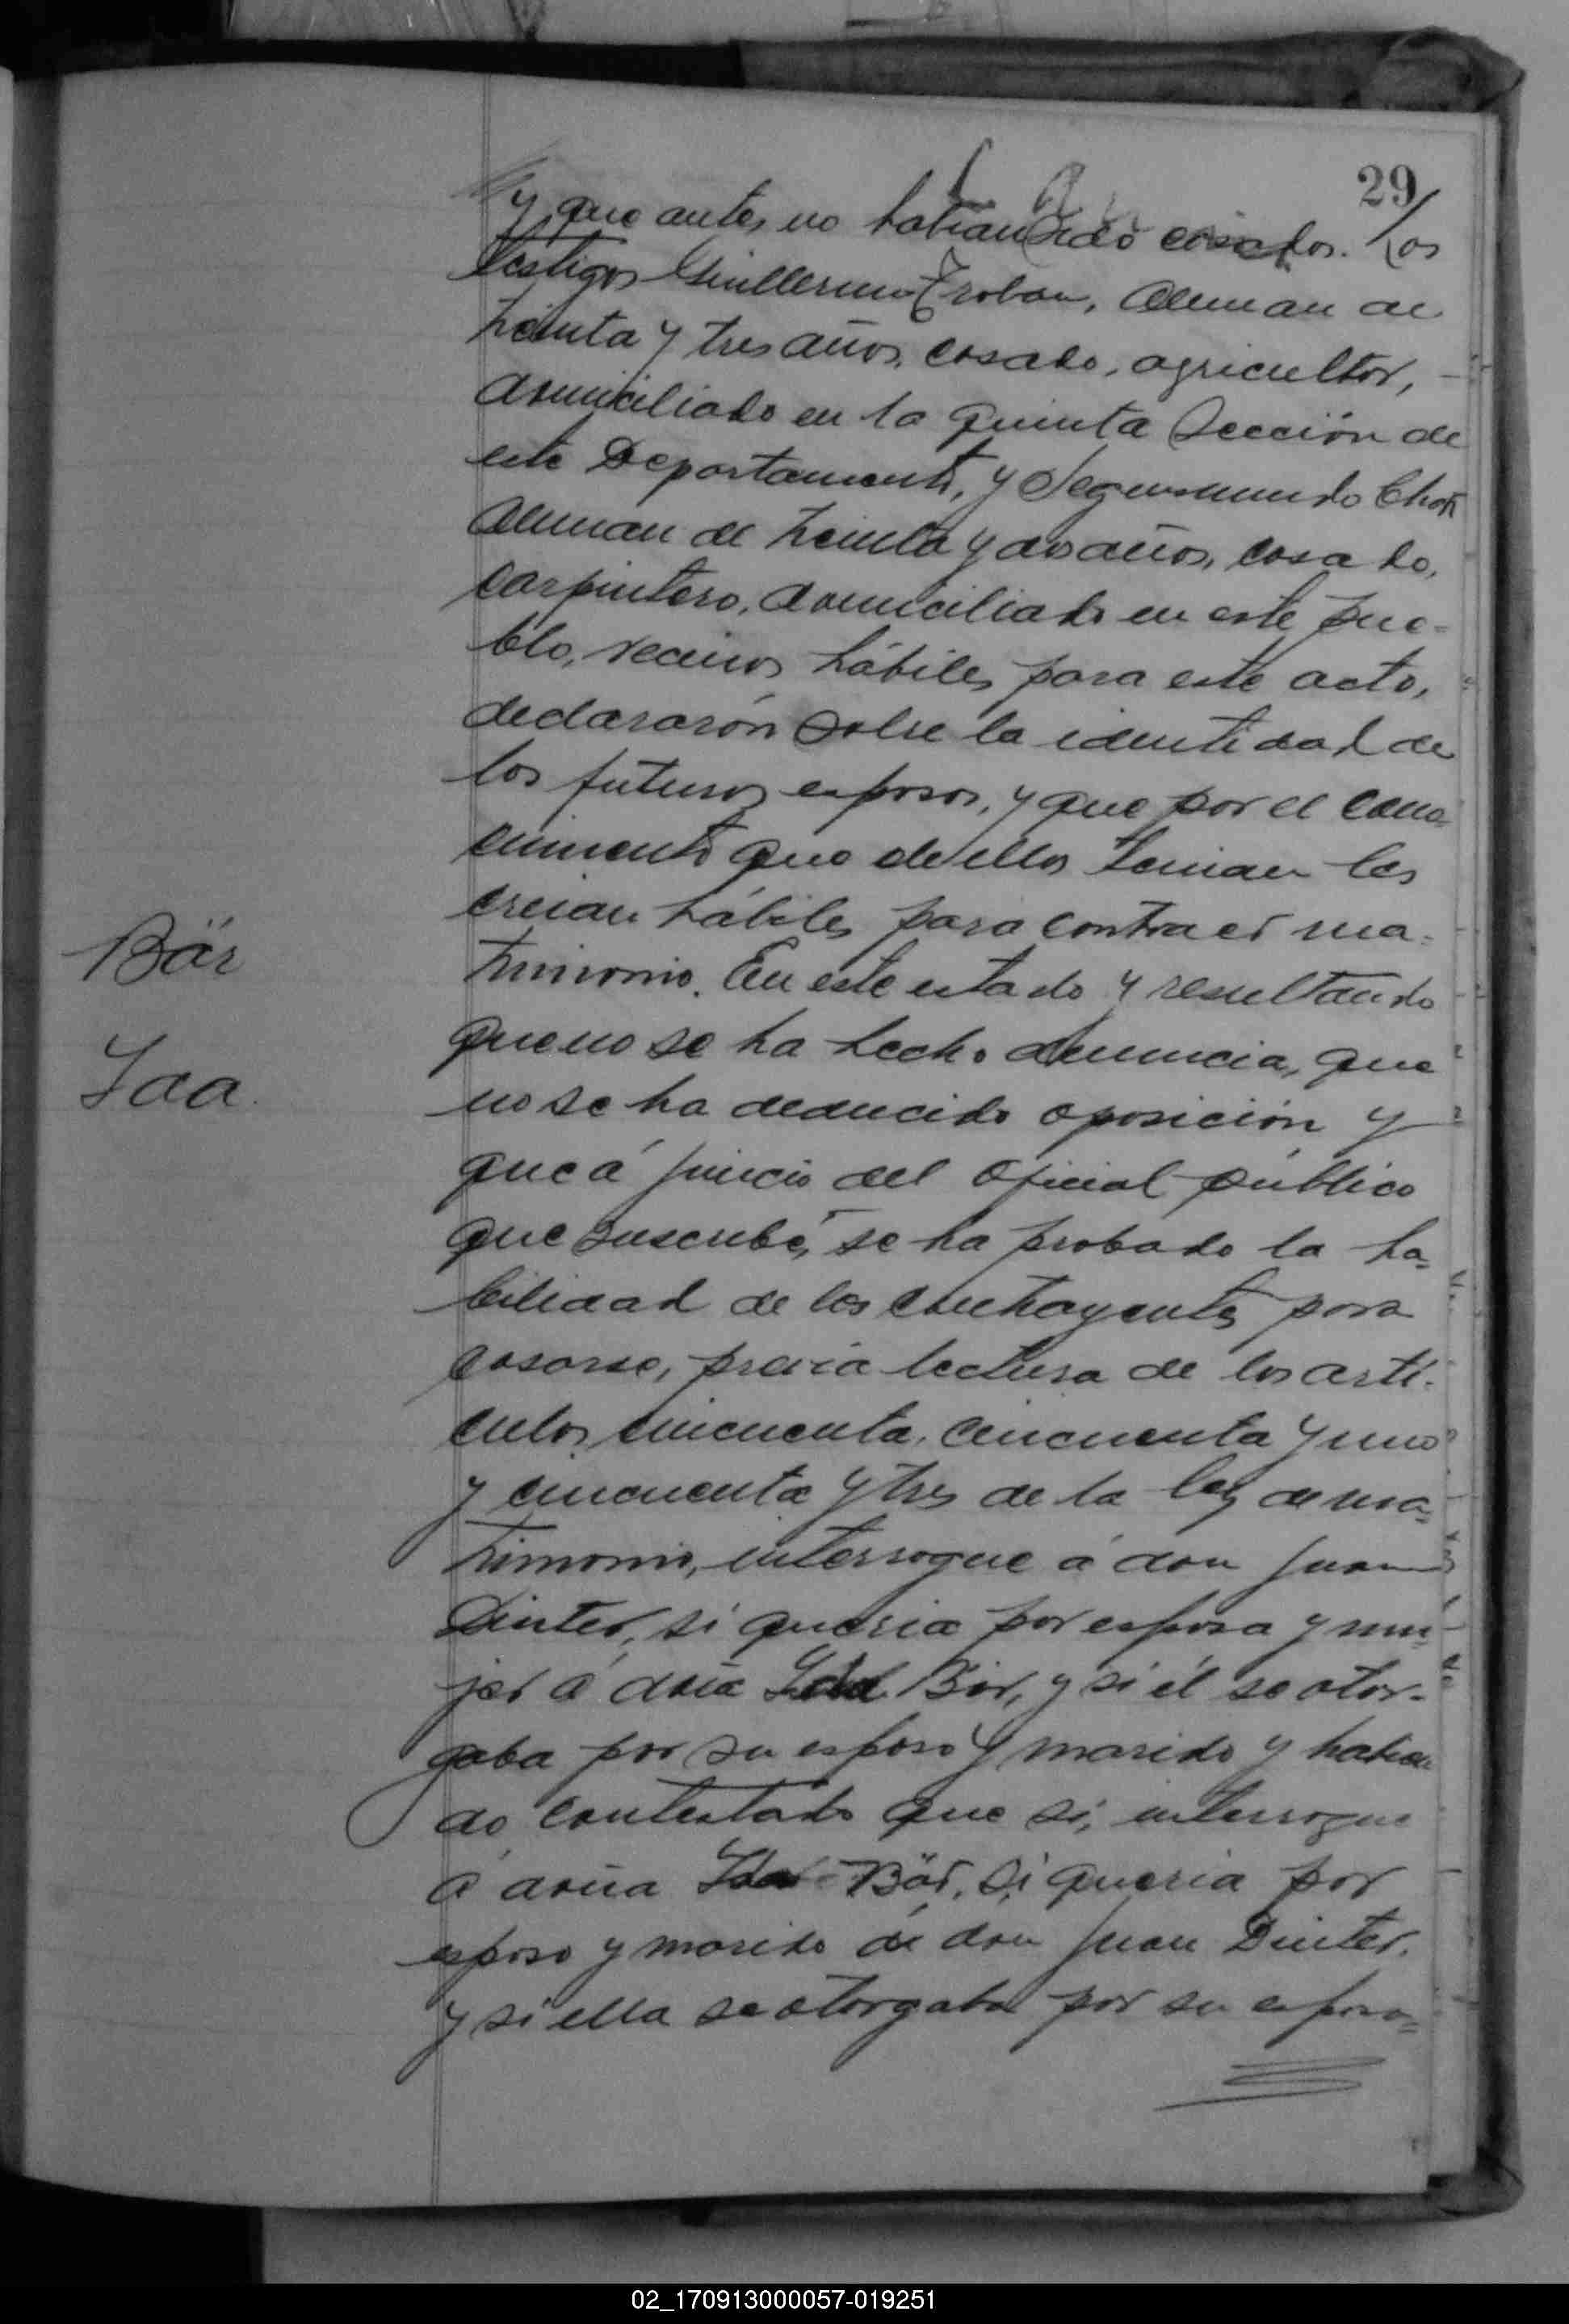 29
y que antes no habian sido casados. Los
testigos Guillermo Troban, Aleman de
treinta y tres años, casado, agricultor,
domiciliado en la quinta Sección de
este Departamento, y Segismundo
Aleman de treinta y dos años, casado,
carpintero, domiciliado en este pue-
blo, vecinos hábiles para este acto,
declararón sobre la identidad de
los futuros esposos, y que por el cono-
cimiento que de ellos tenian los
creian hábiles para contraer ma-
trimonio. En este estado y resultando
que no se ha hecho denuncia, que
no se ha deducido oposición y
que á juicio del oficial público
que suscribe, se ha probado la ha-
bilidad de los contrayentes para
casarse, previa lectura de los artí-
culos cincuenta, cincuenta y uno
y cincuenta y tres de la ley de ma-
trimonio, interrogue á don Juan
Dinter, si queria por esposa y mu-
jer á doña Ida Bär, y si él se otor-
gaba por su esposo y marido y habien-
do contestado que si, interrogue
á doña Ida Bär, si queria por
esposo y marido á don Juan Dinter,
y si ella se otorgaba por su esposa
Bär
Ida
02_170913000057-019251